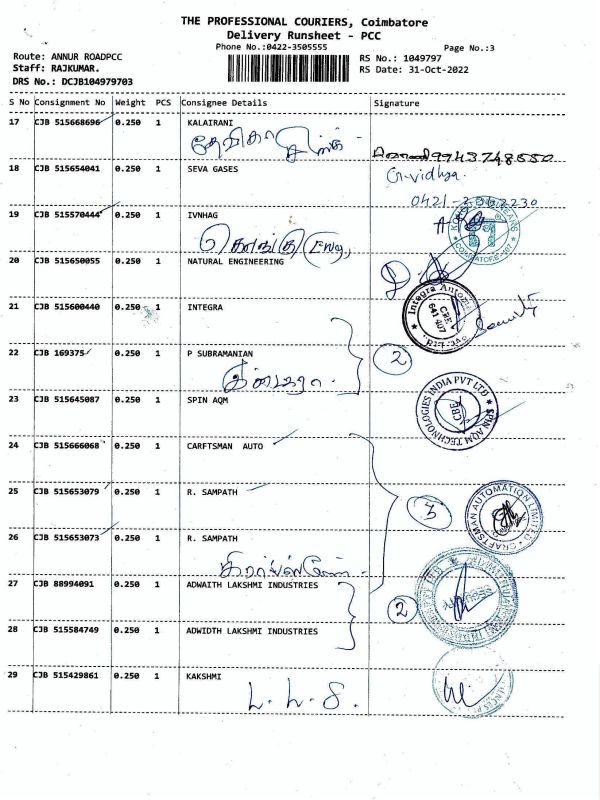 THE PROFESSIONAL COURIERS, Coimbatore
Delivery Runsheet - PCC
Phone No.:0422-3505555
Page No.:3
Route: ANNUR ROADPCC
RS No.: 1049797
Staff: RAJKUMAR.
RS Date: 31-Oct-2022
DRS No.: DCJB104979703
S No Consignment No Weight PCS Consignee Details Signature
17 CJB 515668696 0.250 1 KALAIRANI
9943748550
18 CJB 515654041 0.250 1 SEVA GASES
G.vidhya.
19 CJB 515570444 0.250 1 IVNHAG
20 CJB 515650055 0.250 1 NATURAL ENGINEERING
21 CJB 515600440 0.250 1 INTEGRA
Integra Automa
CBE
641 407
22 CJB 169375 0.250 1 P SUBRAMANIAN
2
23 CJB 515645087 0.250 1 SPIN AQM
SPIN AQM TECHNOLOGIES INDIA PVT LTD
CBE
24 CJB 515666068 0.250 1 CARFTSMAN AUTO
25 CJB 515653079 0.250 1 R. SAMPATH
3
CRAFTSMAN AUTOMATION LIMITED
26 CJB 515653073 0.250 1 R. SAMPATH
27 CJB 88994091 0.250 1 ADWAITH LAKSHMI INDUSTRIES
2
28 CJB 515584749 0.250 1 ADWIDTH LAKSHMI INDUSTRIES
29 CJB 515429861 0.250 1 KAKSHMI
L. L. S.